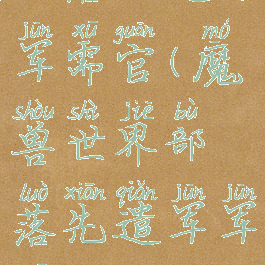 jūn xū guān mó
军需官(魔
shòu shì jiè bù
兽世界部
luò xiān qiǎn jūn jūn
落先遣军军